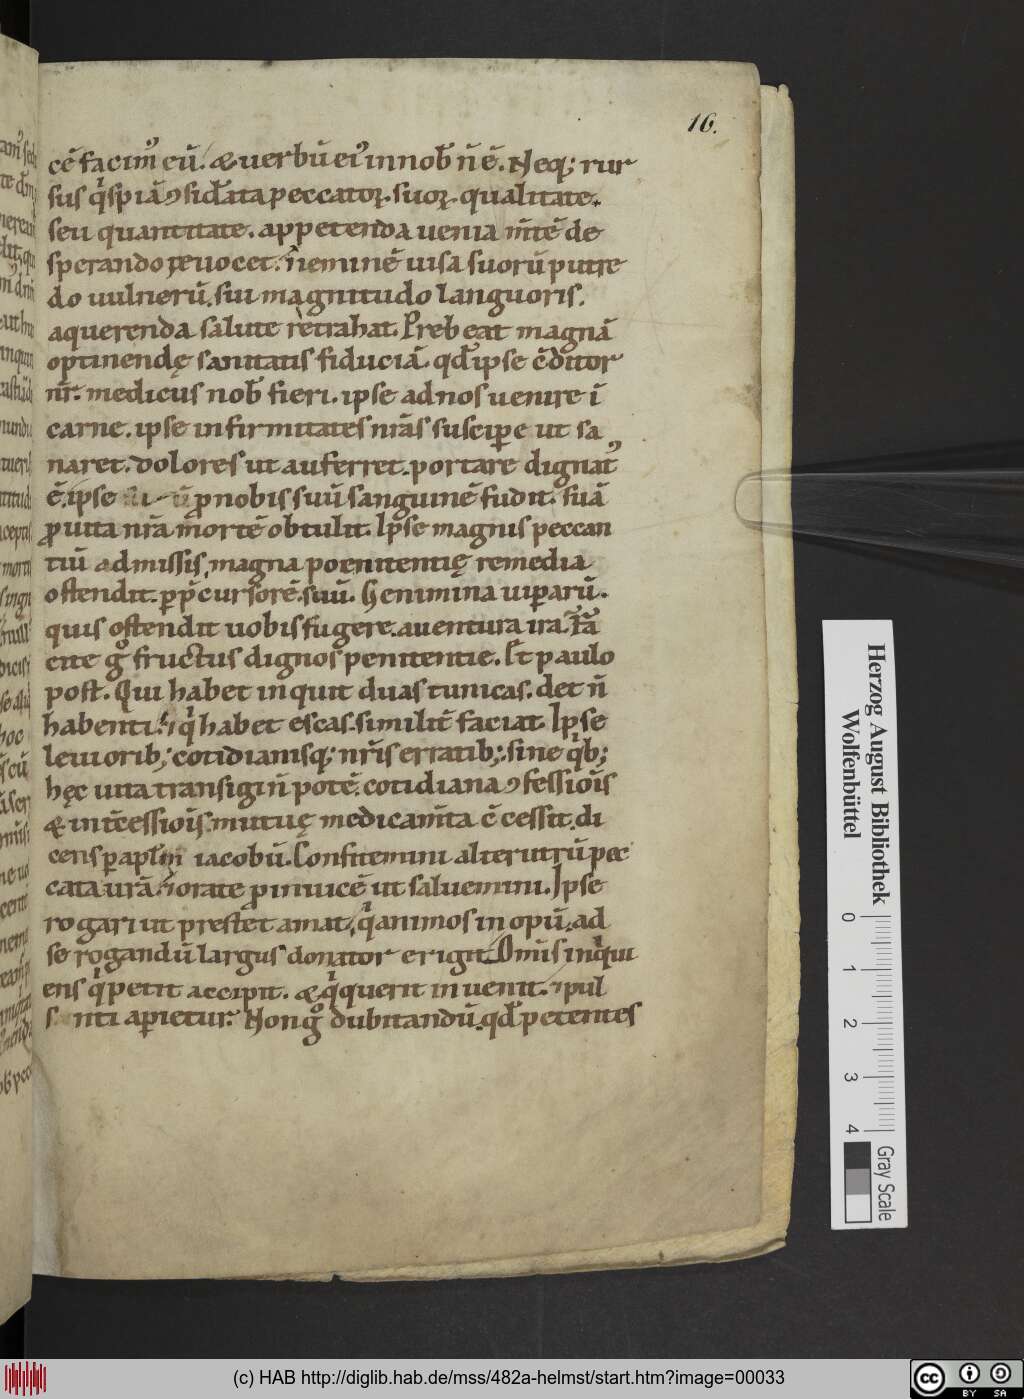 16.
cē facim᾿ eū. & uerbū ei᾿ in nob̄ n̄ ē. Neq; rur
sus q̍spiā ꝯsid̄ata peccatoꝝ. suoꝝ. qualitate.
seu quantitate. appetenda uenia m̄tē de
sperando reuocet. neminē uisa suorū putre
do uulnerū. sui magnitudo languoris.
a querenda salute retrahat. Prebeat magnā
optinendę sanitatis fiduciā. qd̄ ipse c̄ditor
nr̄. medicus nob̄ fieri. ipse ad nos uenire ī
carne. ipse infirmitates nr̄as suscip̄e ut sa
naret. dolores ut auferret. portare dignat᾿
ē. ipse ꝓ nobis suū sanguinē fudit. suā
ꝓ uita nr̄a mortē obtulit. Ipse magnis peccan
tiū admissis, magna poenitentię remedia
ostendit. ꝑ p̄cursorē. suū. Genimina uiꝑarū.
quis ostendit uobis fugere. a uentura ira. Fa
cite gͦ fructus dignos penitentie. Et paulo
post. Qui habet inquit duas tunicas. det n̄
habenti. & q̍ habet escas. similit̄ faciat. Ipse
leuiorib; cotidianisq; nr̄is erratib;. sine q̍b;
hęc uita transigi n̄ potē. cotidiana ꝯfessiōis
& int̄cessiōis. mutuę medicam̄ta c̄cessit. di
cens ꝑ apl̄m iacobū. Confitemini alterutrū pec
cata ur̄a. & orate ꝓ inuicē ut saluemini. Ipse
rogari ut prestet amat, q̍ animos inopū. ad
se rogandū largus donator erigit. Om̄is inq̍ui
ens q̍ petit accipit. & q̍ querit inuenit. & pul
s nti aꝑietur. Non gͦ dubitandū. qd̄ petentes
Herzog August Bibliothek
Wolfenbüttel
0 1 2 3 4
Gray Scale
(c) HAB http://diglib.hab.de/mss/482a-helmst/start.htm?image=00033
cc BY SA